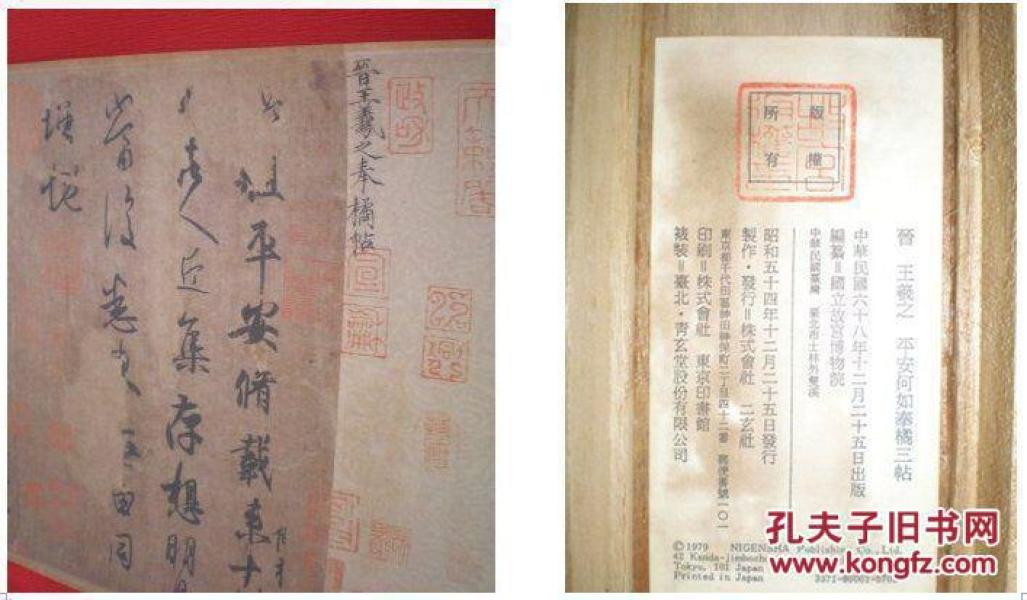 晉王羲之奉橘帖
政和
宣和
此粗平安脩載來十
餘人近集存想明日
當復悉來無由同
增慨
版權
所有
晉 王羲之 平安何如奉橘三帖
中華民國六十八年十二月二十五日出版
編纂=國立故宮博物院
中華民國臺灣 臺北市士林外雙溪
昭和五十四年十二月二十五日發行
製作・發行=株式會社 二玄社
東京都千代田區神田神保町二丁目四十二番 郵便番號一〇一
印刷=株式會社 東京印書館
裱裝=臺北・靑玄堂股份有限公司
©1979 NIGENSHA Publishing Co., Ltd.
42 Kanda-jimbocho
Tokyo, 101 Japan
Printed in Japan
孔夫子旧书网
www.kongfz.com